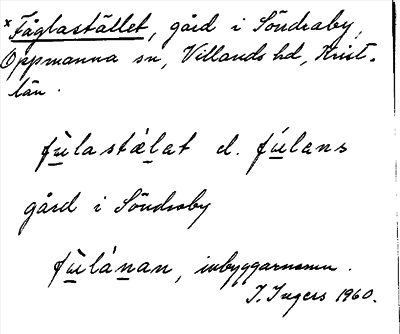 *Fåglastället, gård i Söndraby,
Oppmanna sn, Villands hd, Krist.
län.
fùlastælat el. fúlans
gård i Söndraby
fùlánan, inbyggarnamn.
I. Ingers 1960.